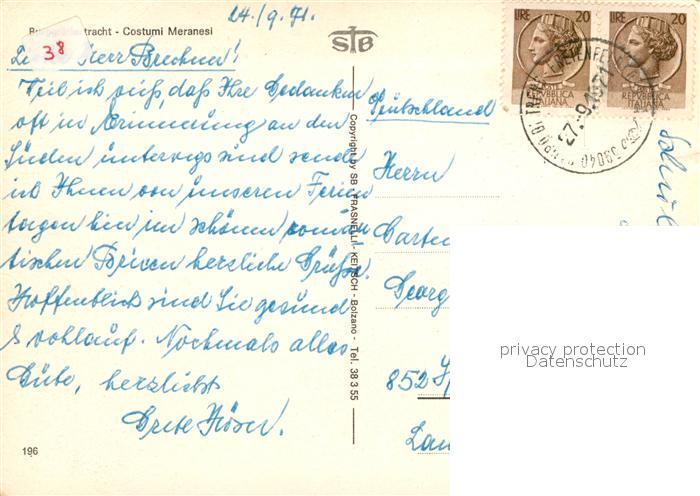 24./9. 71.
tracht - Costumi Meranesi
38
Herr Brechner!
Weil ich weiß, daß Ihre Gedanken
oft in Erinnerung an den
Süden unterwegs sind sende
ich Ihnen von unseren Ferien
tagen hier im schönen roman
tischen Brixen herzliche Grüße.
Hoffentlich sind Sie gesund
& wohlauf. Nochmals alles
Gute, herzlichst
Grete
196
STB
Copyright by SB - FRASNELLI - KEITSCH - Bolzano - Tel. 38 3 55
LIRE 20
REPUBBLICA
ITALIANA
LIRE 20
REPUBBLICA
ITALIANA
27.-9.1971
39040
Deutschland
Herrn
Garten
Georg
852
Lan
privacy protection
Datenschutz